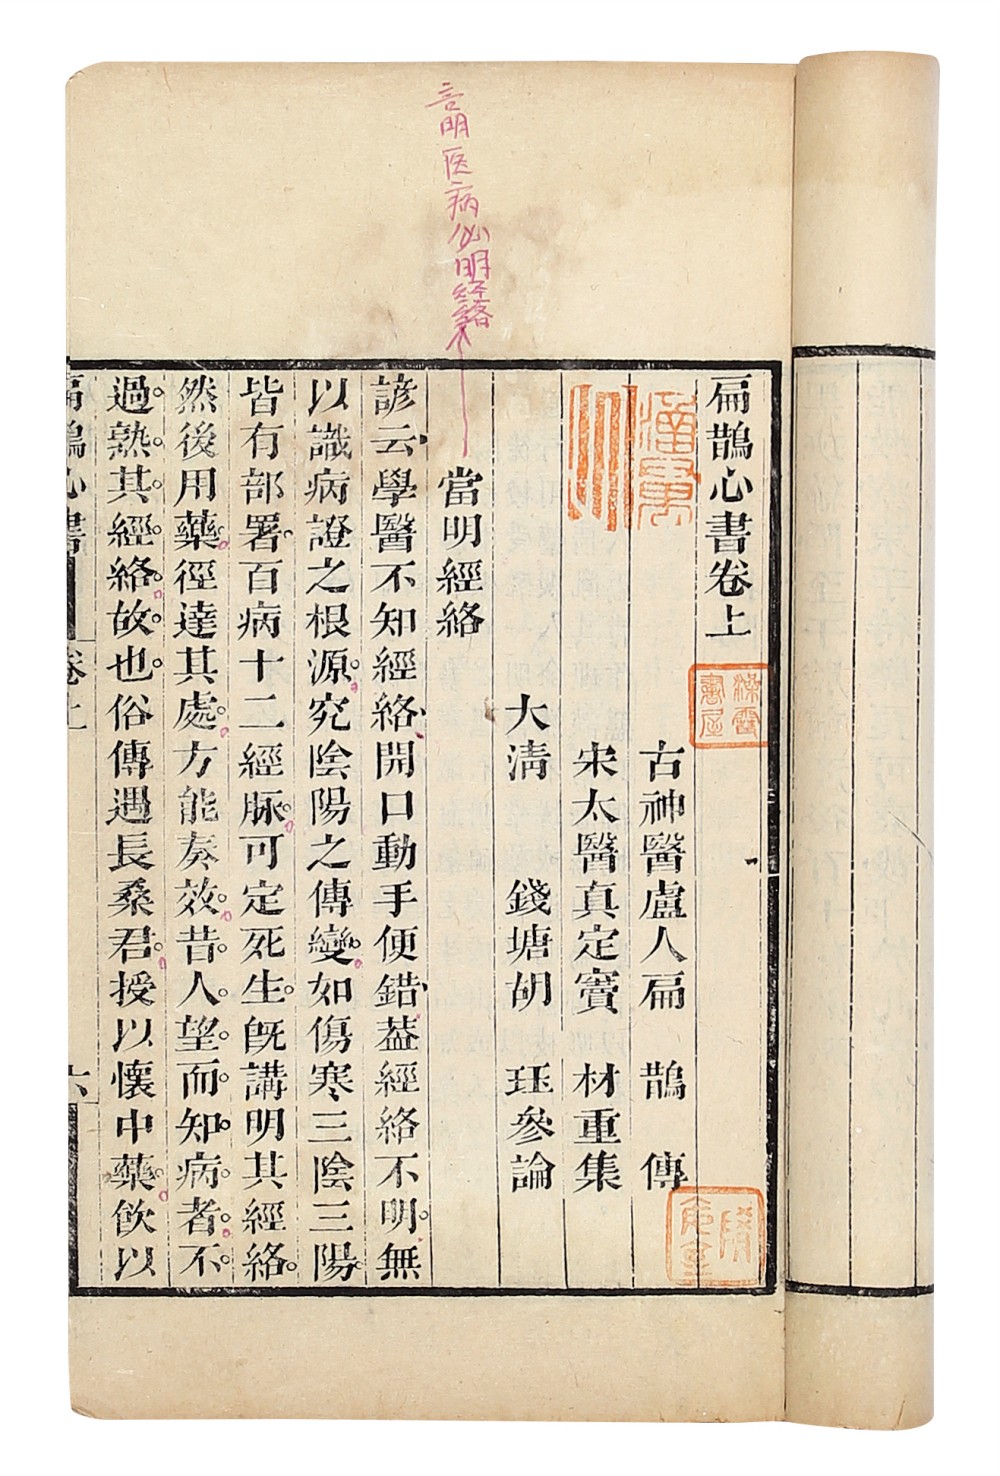 言明医病必明经络
扁鵲心書卷上
古神醫盧人扁 鵲 傳
宋太醫真定竇 材重集
大清 錢塘胡 珏參論
當明經絡
諺云學醫不知經絡開口動手便錯葢經絡不明無
以識病證之根源究陰陽之傳變如傷寒三陰三陽
皆有部署百病十二經脉可定死生旣講明其經絡
然後用藥徑達其處方能奏效昔人望而知病者不
過熟其經絡故也俗傳遇長桑君授以懷中藥飲以
扁鵲心書 卷上 六